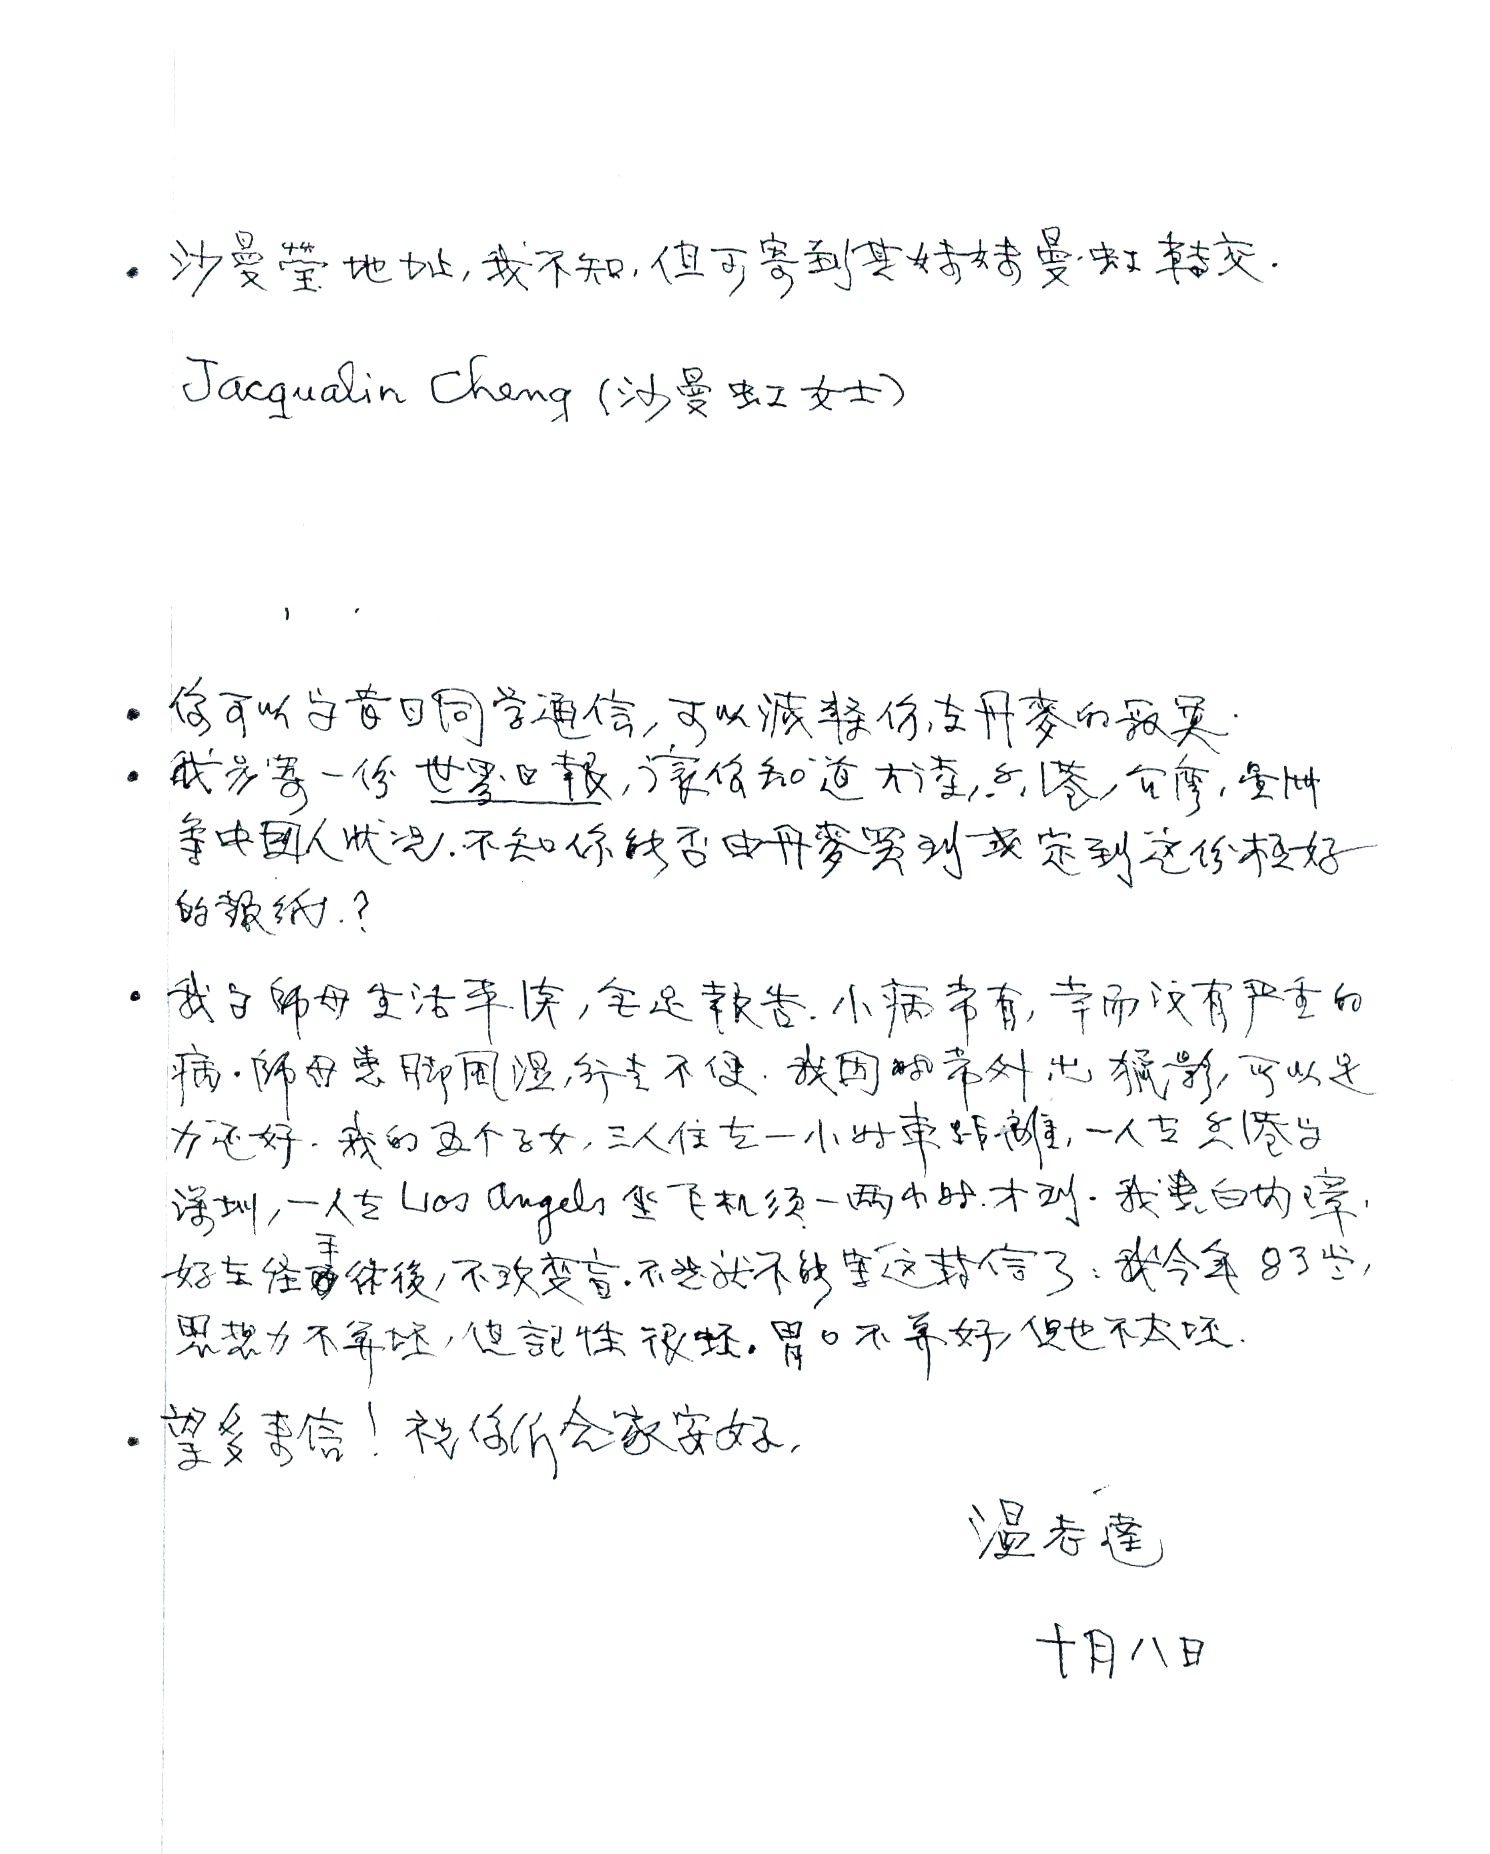 • 沙曼莹地址,我不知,但可寄到其妹妹曼虹轉交.
Jacqualin Cheng (沙曼虹女士)
• 你可以与昔日同学通信,可以減輕你在丹麥的寂寞.
• 我另寄一份世界日報,讓你知道大陸,香港,台灣,星洲
等中国人狀况.不知你能否由丹麥買到或定到这份极好
的報纸.?
• 我与師母生活平淡,無足報告.小病常有,幸而没有严重的
病.師母患脚風湿,行走不便.我因時常外出攝影,可以足
力还好.我的五个子女,三人住在一小时車距離,一人在香港与
深圳,一人在Los Angels坐飞机须一两小时才到.我患白内障,
好在经手術後,不致变盲.不然就不能寫这封信了.我今年83岁,
思想力不算坏,但記性很坏.胃口不算好,但也不太坏.
• 望多来信!祝你们全家安好,
温志達
十月八日